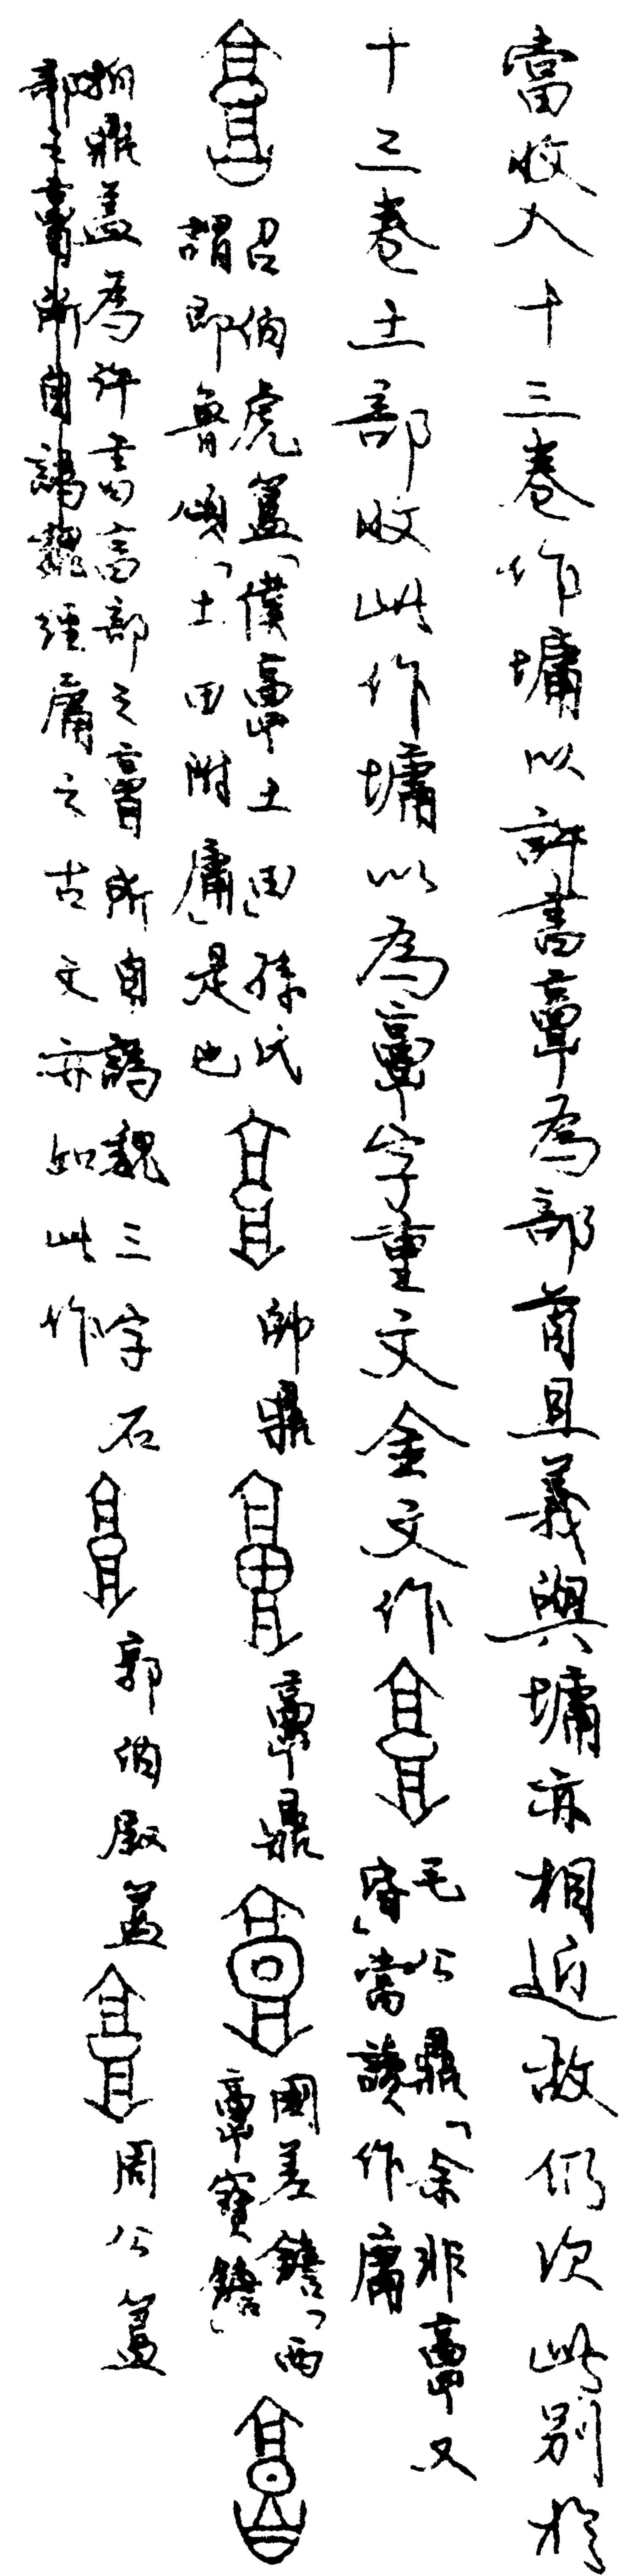 當收入十三卷作墉以許書𩫏為部首且義與墉亦相近故仍次此別於
十三卷土部收此作墉以為𩫏字重文金文作
毛公鼎「余非𩫏又
昏」當讀作庸
召伯虎簋「僕𩫏土田」孫氏
謂即魯頌「土田附庸」是也
帥鼎
𩫏鼎
國差𦉜「西
𩫏寶𦉜」
拍鼎蓋為許書亯部之𦤘所自譌魏三字石
經庸之古文亦如此作
郭伯𣪘蓋
周公簋